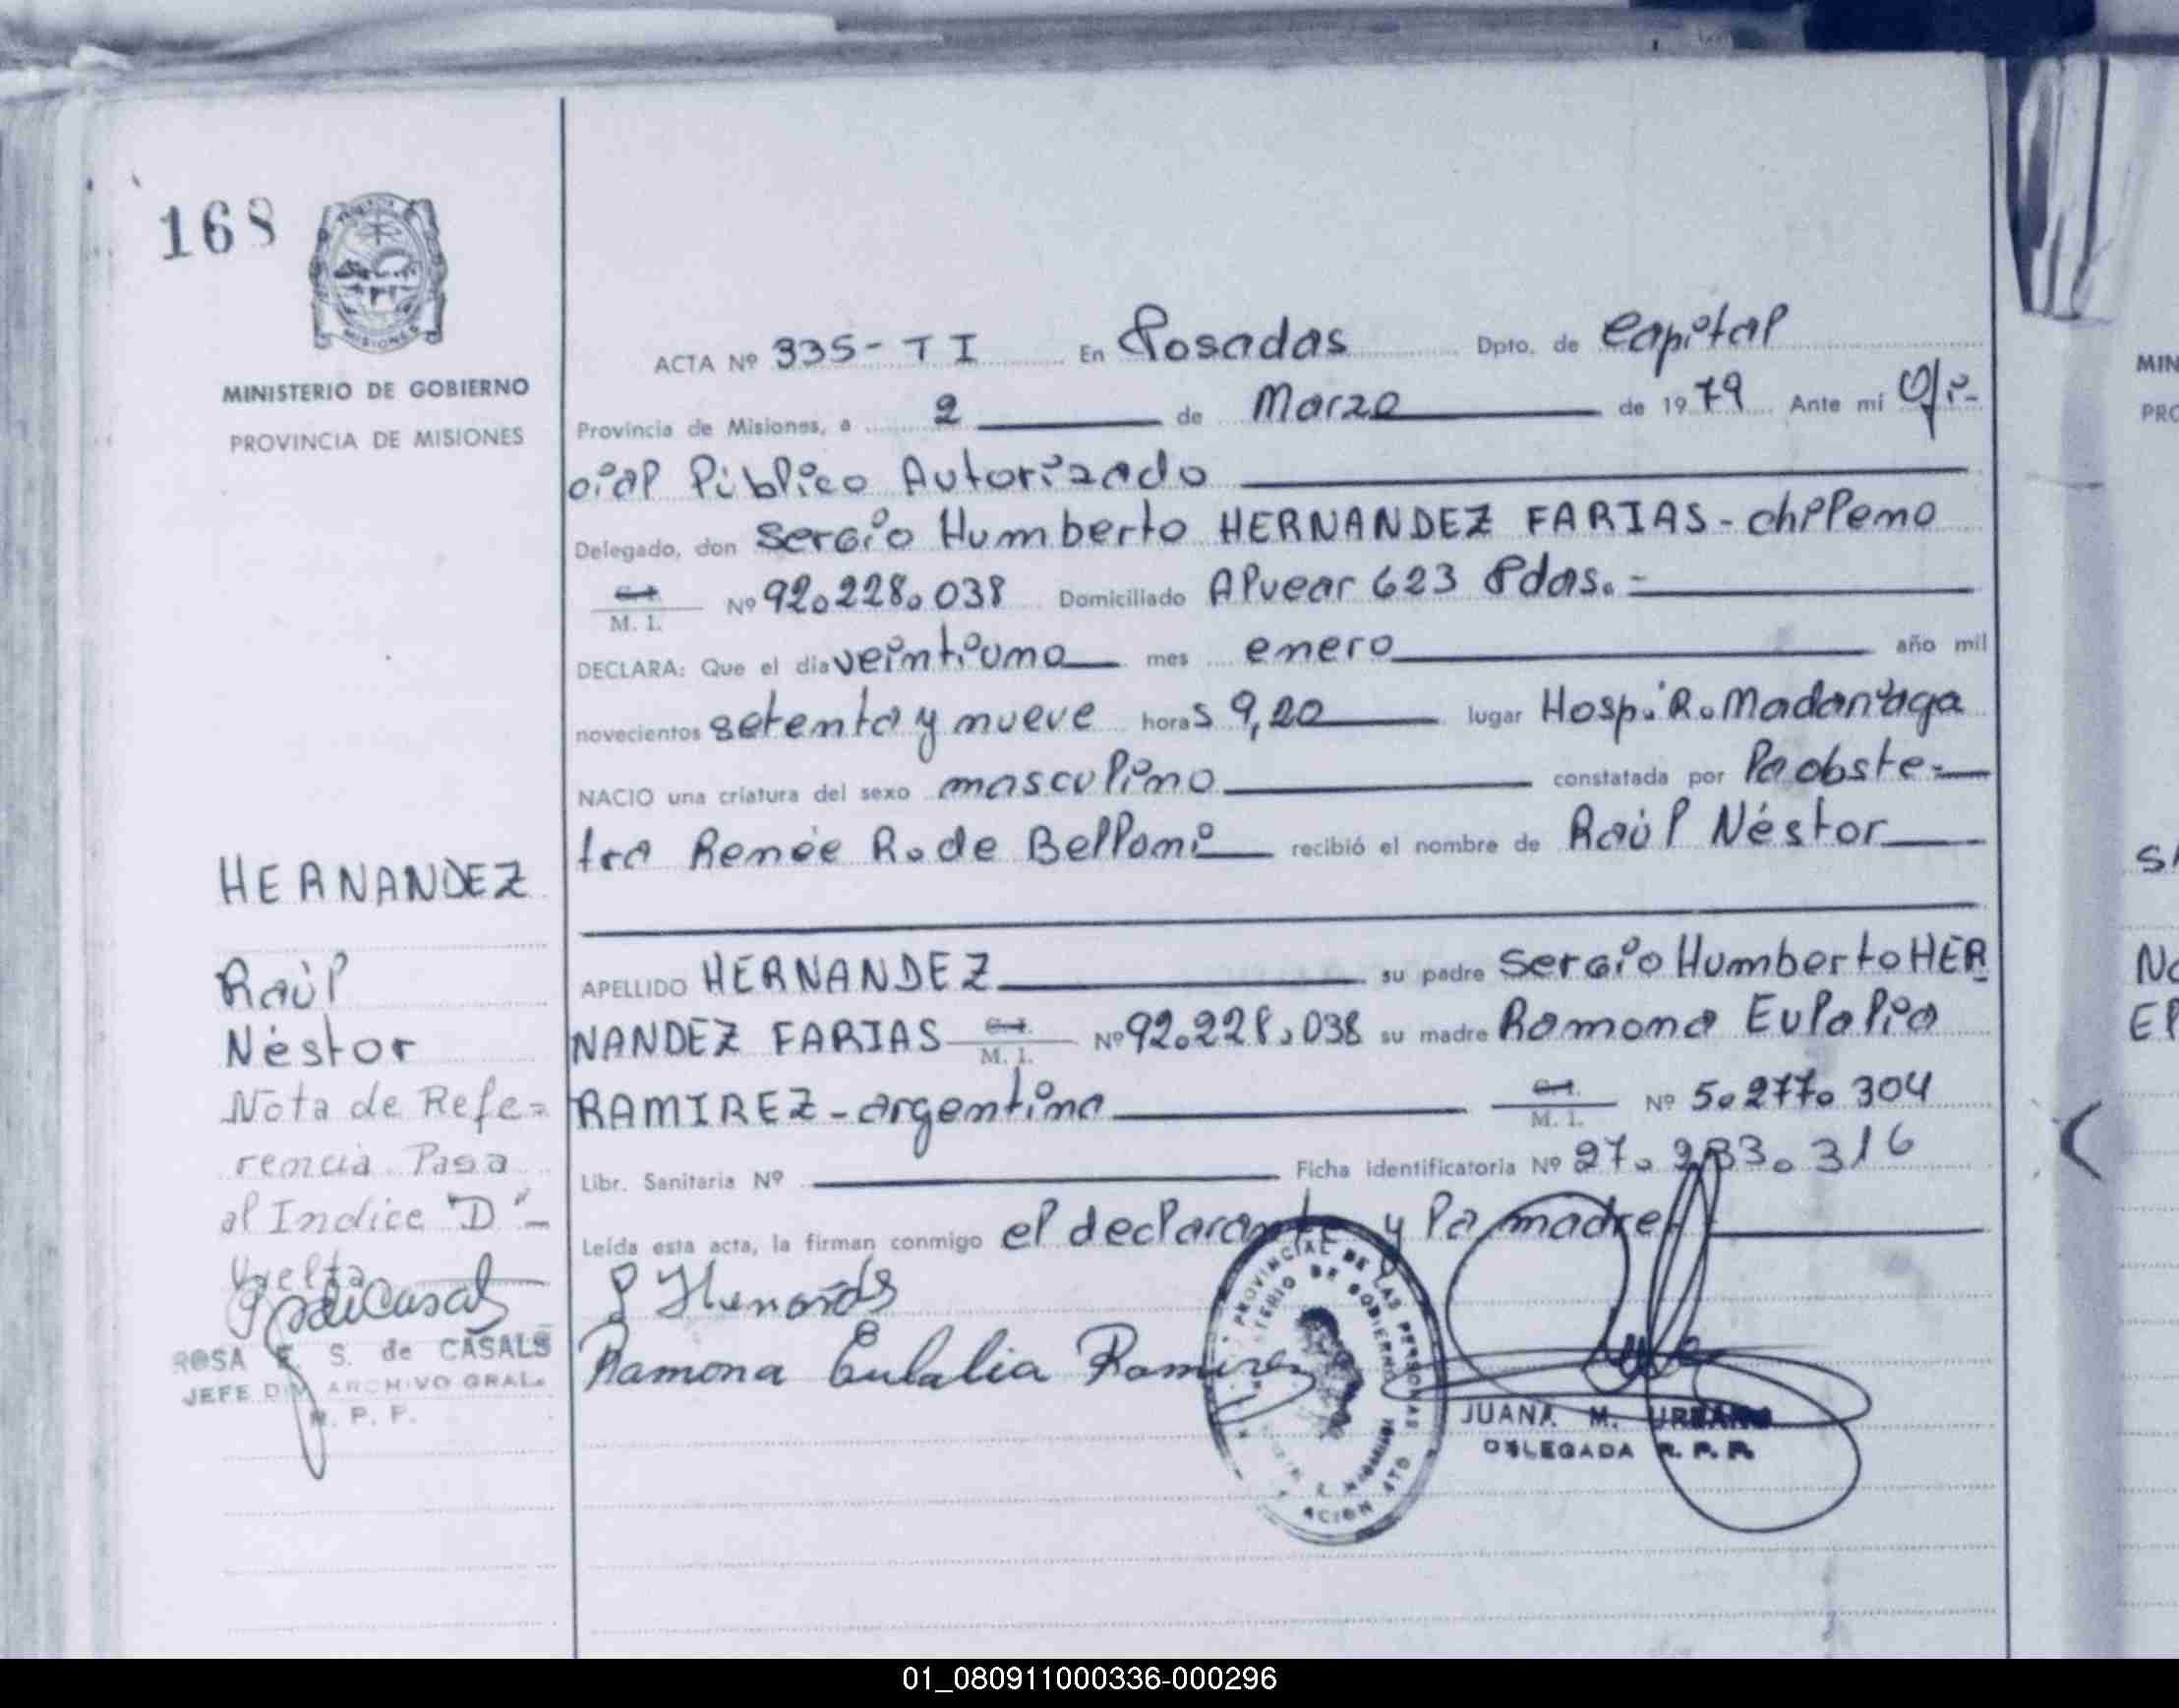 168
MISIONES
MINISTERIO DE GOBIERNO
PROVINCIA DE MISIONES
ACTA Nº 335-TI En Posadas Dpto. de Capital
Provincia de Misiones, a 2 de Marzo de 1979 Ante mí Ofi-
cial Público Autorizado
Delegado, don Sergio Humberto HERNANDEZ FARIAS - chileno
C.I. M. I. Nº 92.228.038 Domiciliado Alvear 623 Pdas.-
DECLARA: Que el día veintiuno mes enero año mil
novecientos setenta y nueve horas 9,20 lugar Hosp. R. Madariaga
NACIO una criatura del sexo masculino constatada por la obste-
tra Renée R. de Belloni recibió el nombre de Raúl Néstor
APELLIDO HERNANDEZ su padre Sergio Humberto HER
NANDEZ FARIAS C.I. M. I. Nº 92.228.038 su madre Ramona Eulalia
RAMIREZ - argentina C.I. M. I. Nº 5.277.304
Libr. Sanitaria Nº Ficha identificatoria Nº 27.283.316
Leída esta acta, la firman conmigo el declarante y la madre.
Ramona Eulalia Ramirez
PROVINCIAL DE LAS PERSONAS
JUANA M. URBANO
DELEGADA R. P. P.
HERNANDEZ
Raúl
Néstor
Nota de Refe-
rencia Pasa
al Indice "D"-
Vuelta
ROSA E. S. de CASALS
JEFE DIV. ARCHIVO GRAL.
R. P. P.
MIN
PRO
01_080911000336-000296